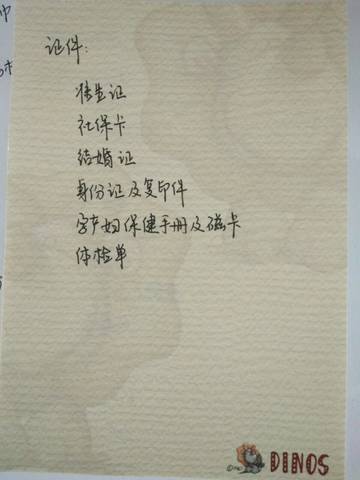 证件：
准生证
社保卡
结婚证
身份证及复印件
孕产妇保健手册及磁卡
体检单
DINOS